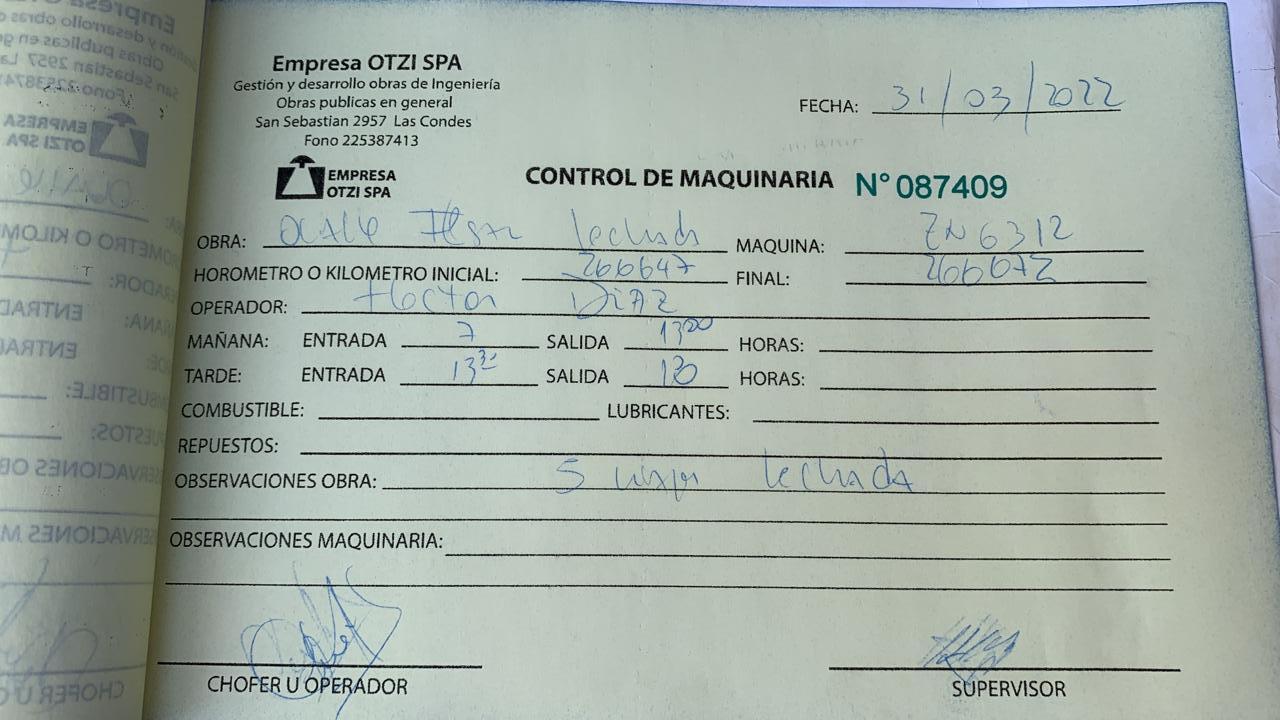 Empresa OTZI SPA
Gestión y desarrollo obras de Ingeniería
Obras publicas en general
San Sebastian 2957 Las Condes
Fono 225387413
FECHA: 31/03/2022
EMPRESA
OTZI SPA
CONTROL DE MAQUINARIA N° 087409
OBRA: lechada MAQUINA: ZN6312
HOROMETRO O KILOMETRO INICIAL: 266647 FINAL: 266672
OPERADOR: Hector DIAZ
MAÑANA: ENTRADA 7 SALIDA 13 00 HORAS:
TARDE: ENTRADA SALIDA HORAS:
COMBUSTIBLE: LUBRICANTES:
REPUESTOS:
OBSERVACIONES OBRA: 5 lechada
OBSERVACIONES MAQUINARIA:
CHOFER U OPERADOR SUPERVISOR